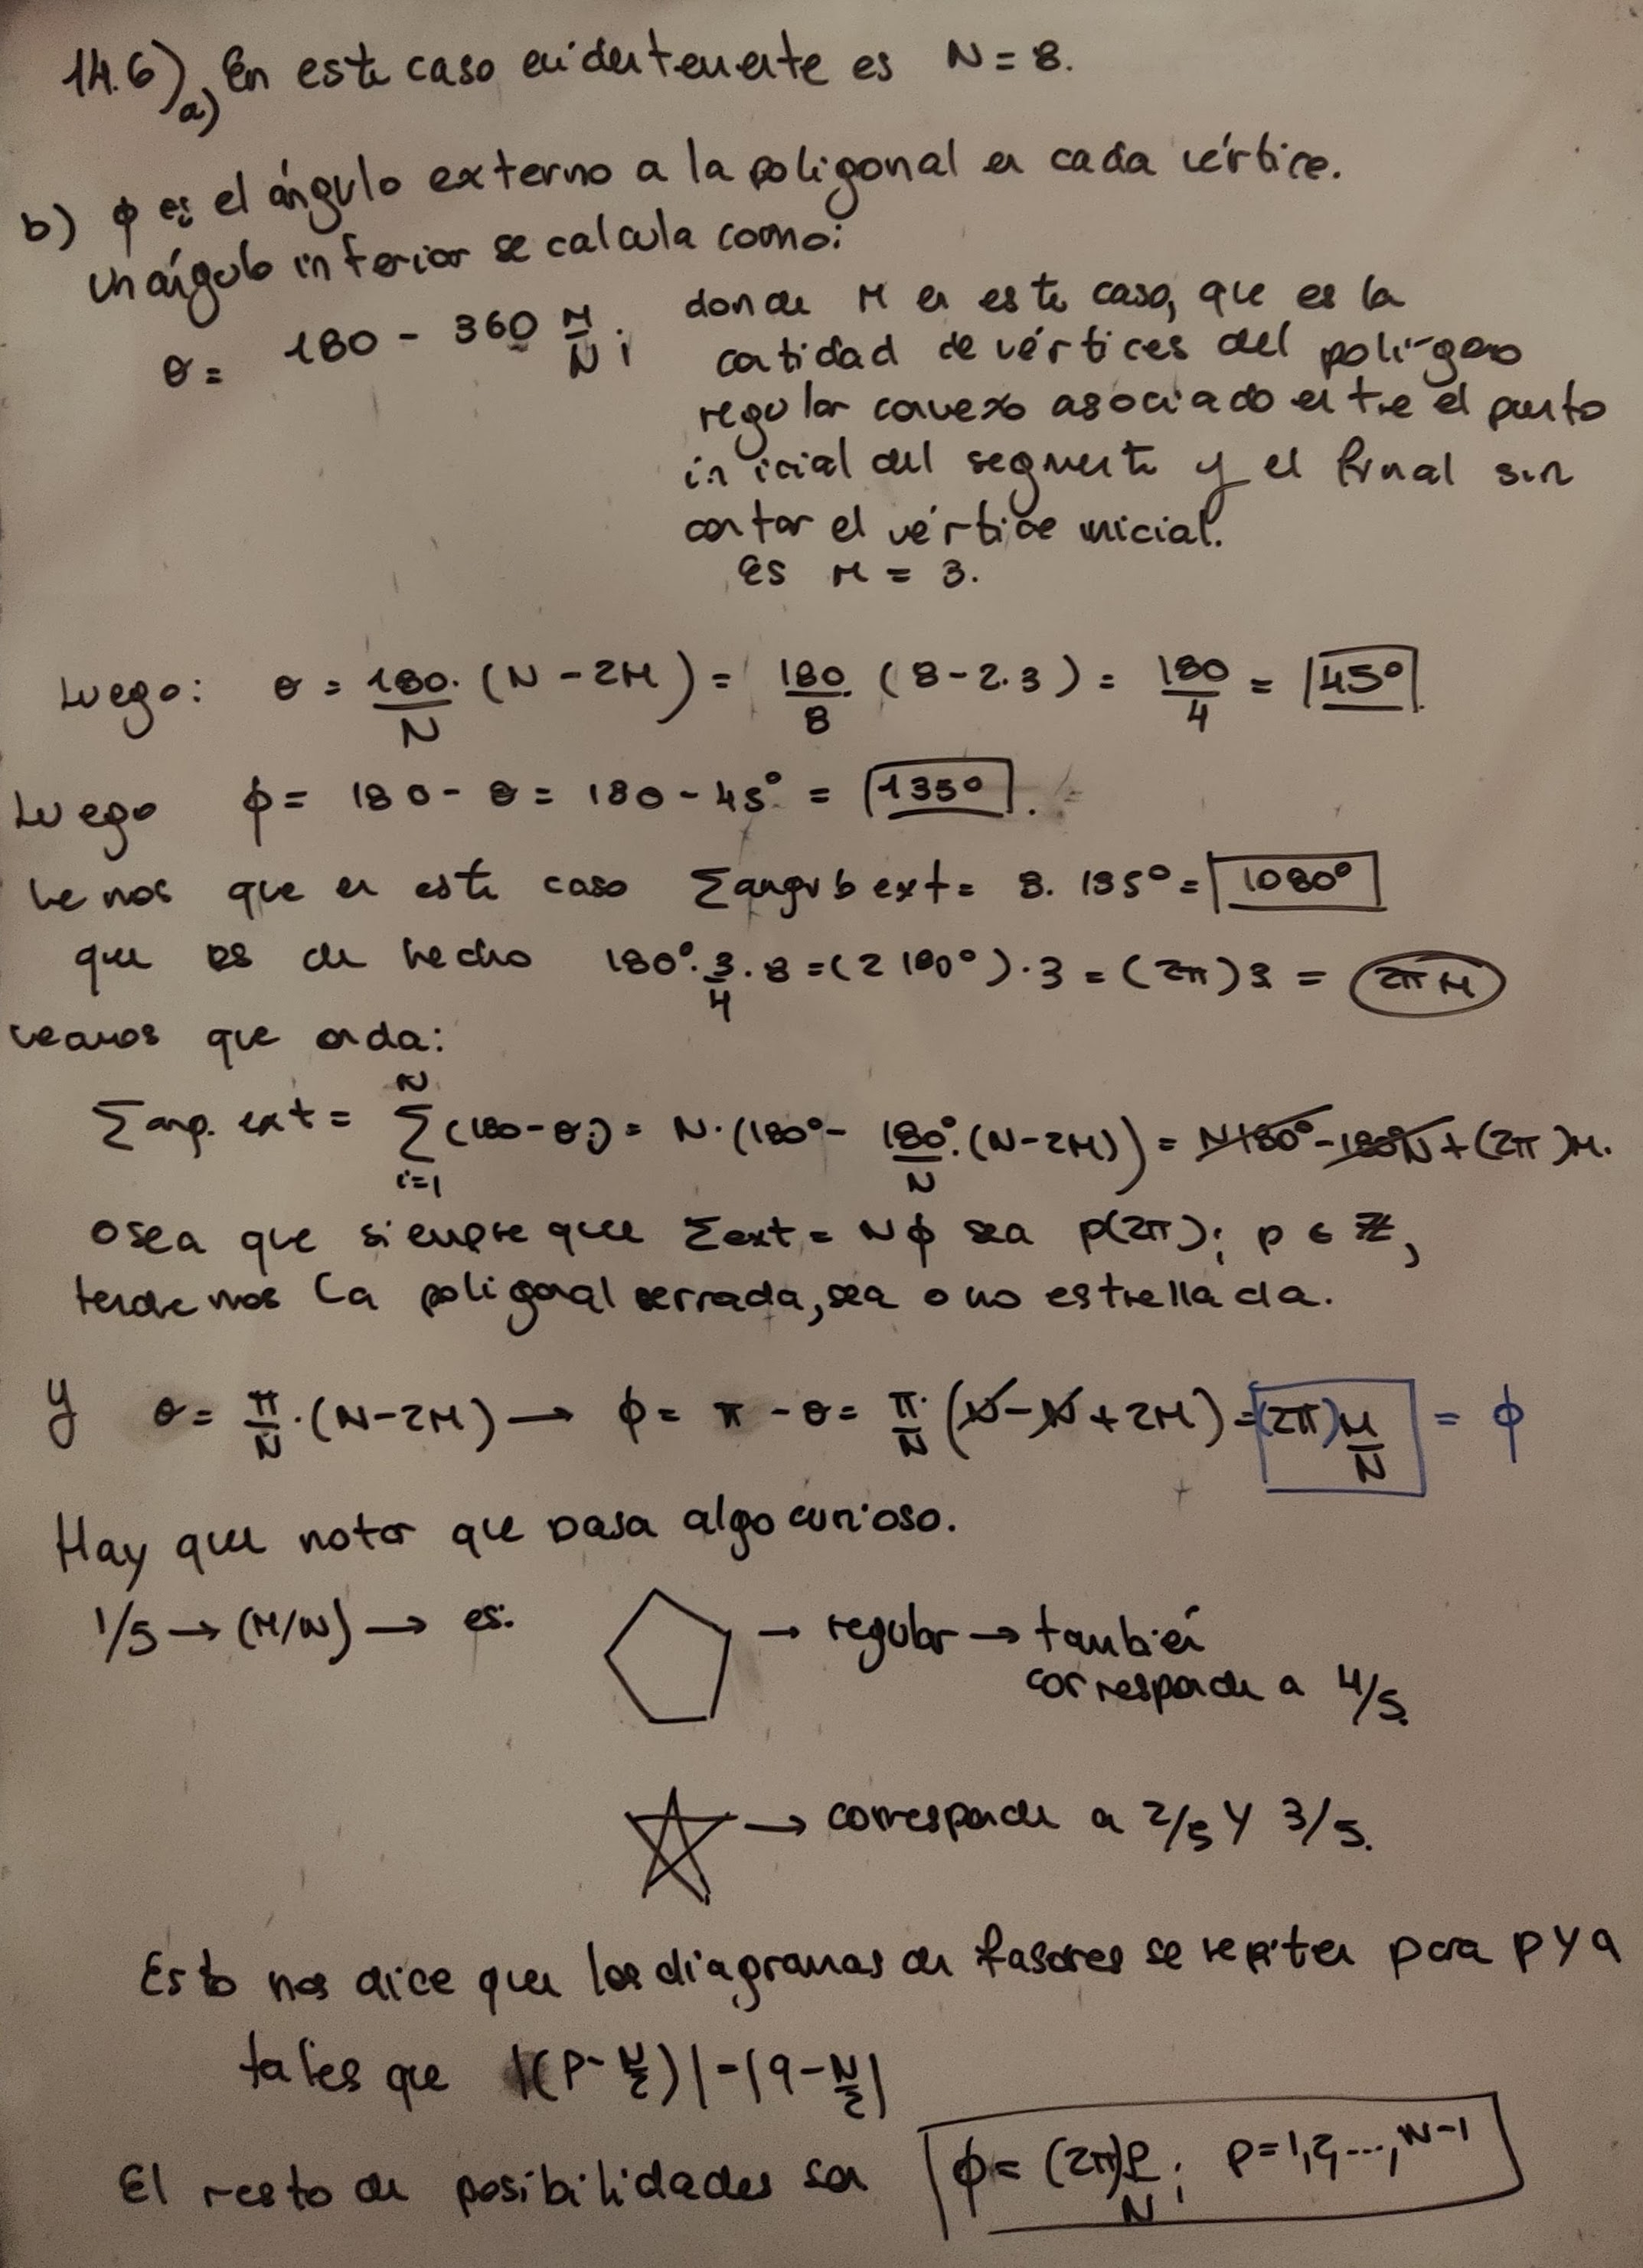 14.6) a) En este caso evidentemente es N = 8.
b) φ es el ángulo externo a la poligonal en cada vértice.
Un ángulo interior se calcula como:
θ = 180 - 360 M/N ; donde M en este caso, que es la
cantidad de vértices del polígono
regular convexo asociado entre el punto
inicial del segmento y el final sin
contar el vértice inicial.
Es M = 3.
Luego: θ = 180/N · (N - 2M) = 180/8 · (8 - 2·3) = 180/4 = 45°
Luego φ = 180 - θ = 180 - 45° = 135°.
Vemos que en este caso Σangulo ext = 8. 135° = 1080°
que es de hecho 180° · 3/4 · 8 = (2 180°) · 3 = (2π)3 = 2πM
veamos que onda:
Σ ang. ext = Σ_{i=1}^{N} (180 - θi) = N · (180° - 180°/N · (N - 2M)) = N180° - 180°N + (2π)M.
O sea que siempre que Σext = Nφ sea p(2π); p ∈ ℤ,
tendremos la poligonal cerrada, sea o no estrellada.
Y θ = π/N · (N - 2M) → φ = π - θ = π/N (N - N + 2M) = (2π)M/N = φ
Hay que notar que pasa algo curioso.
1/5 → (M/N) → es: → regular → también
corresponde a 4/5.
→ corresponde a 2/5 y 3/5.
Esto nos dice que los diagramas de fasores se repiten para p y q
tales que |(p - N/2)| = |q - N/2|
El resto de posibilidades son φ = (2π)p/N ; p = 1, 2, ..., N-1